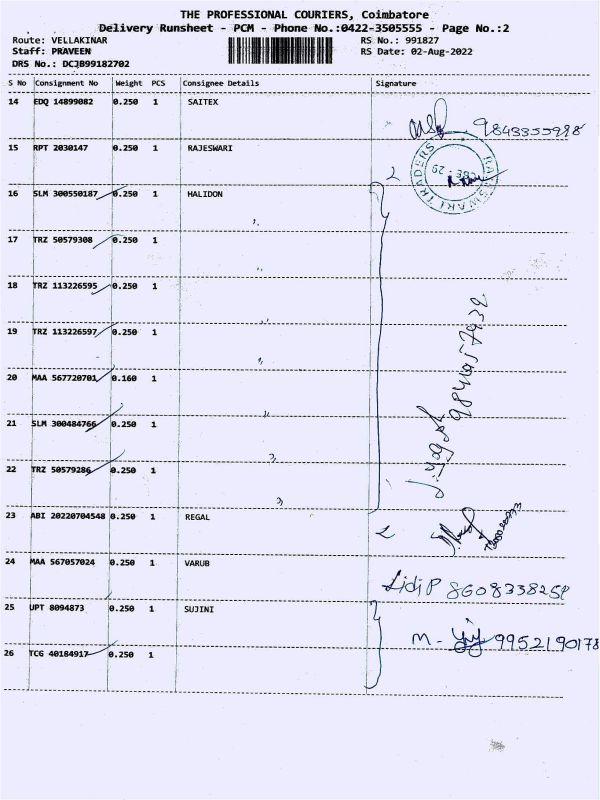 THE PROFESSIONAL COURIERS, Coimbatore
Delivery Runsheet - PCM - Phone No.:0422-3505555 - Page No.:2
Route: VELLAKINAR RS No.: 991827
Staff: PRAVEEN RS Date: 02-Aug-2022
DRS No.: DCJB99182702
S No Consignment No Weight PCS Consignee Details Signature
14 EDQ 14899082 0.250 1 SAITEX
9843355998
15 RPT 2030147 0.250 1 RAJESWARI
RAJESWARI TRADERS
CBE - 29
16 SLM 300550187 0.250 1 HALIDON
17 TRZ 50579308 0.250 1
18 TRZ 113226595 0.250 1
19 TRZ 113226597 0.250 1
20 MAA 567720701 0.160 1
21 SLM 300484766 0.250 1
22 TRZ 50579286 0.250 1
23 ABI 20220704548 0.250 1 REGAL
24 MAA 567057024 0.250 1 VARUB
8608338258
25 UPT 8094873 0.250 1 SUJINI
M- 9952190178
26 TCG 40184917 0.250 1